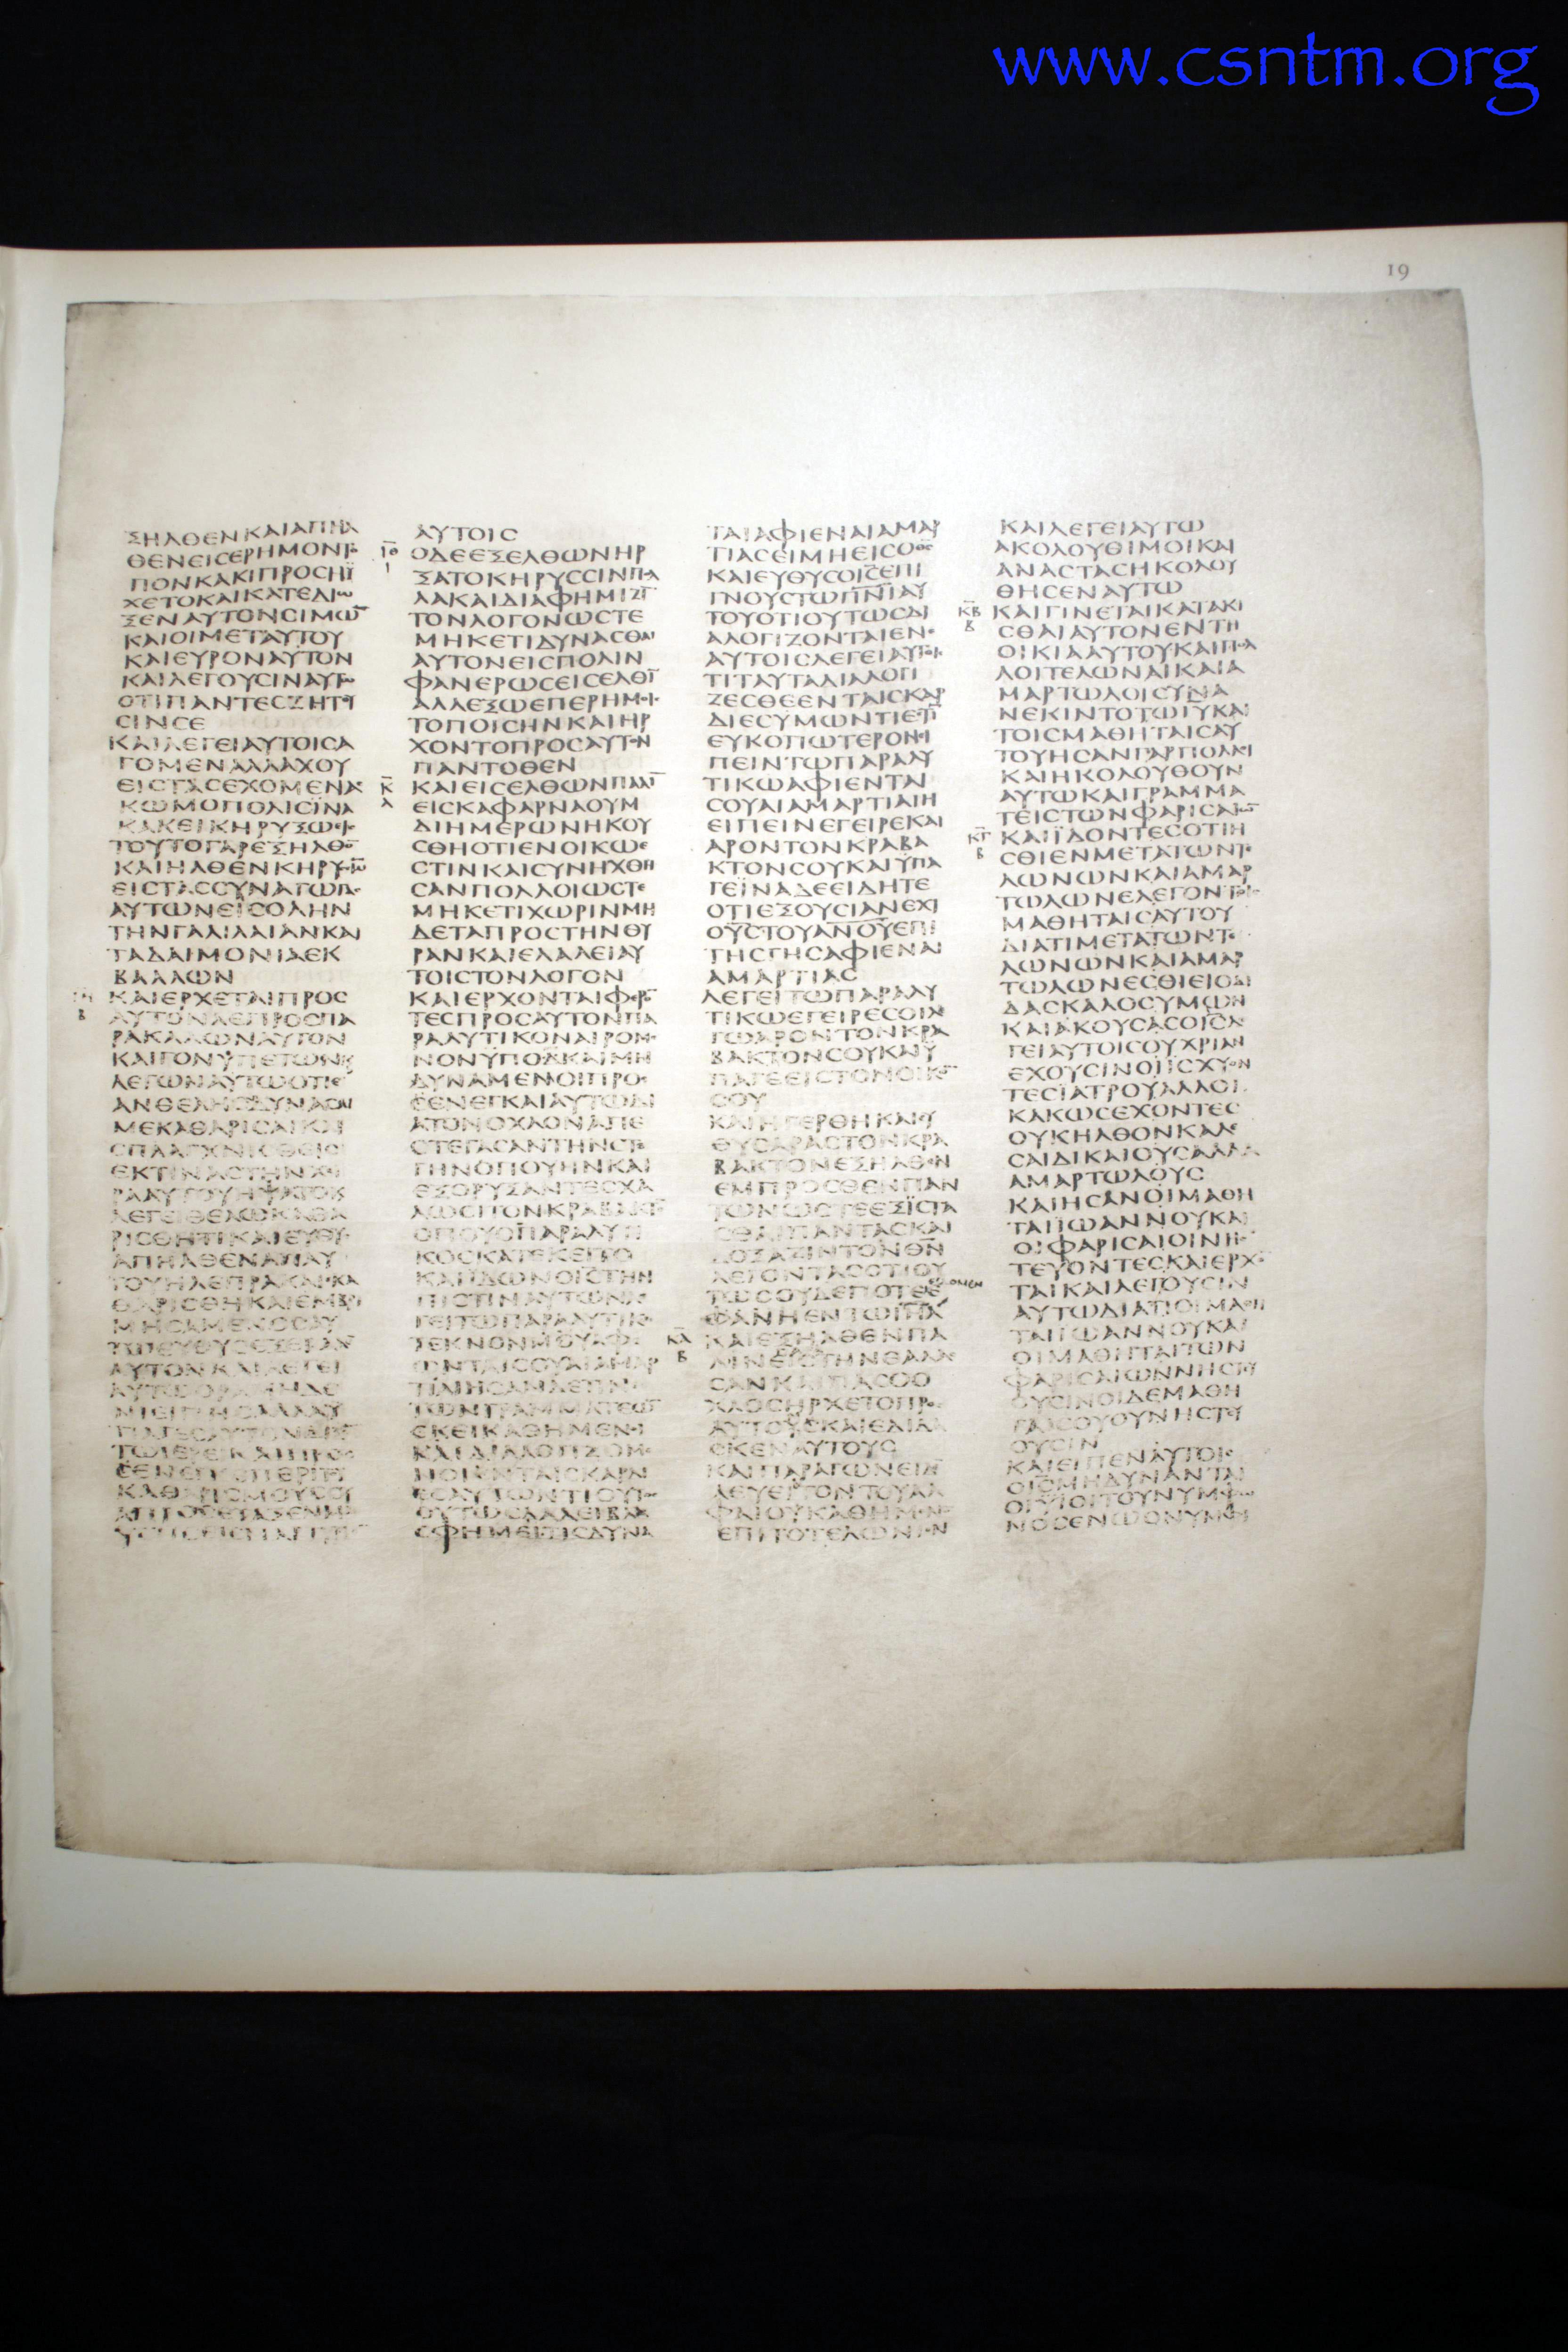 www.csntm.org
19
ΞΗΛΘΕΝΚΑΙΑΠΗΛ
ΘΕΝΕΙCΕΡΗΜΟΝΤΟ
ΠΟΝΚΑΚΙΠΡΟCΗΫ
ΧΕΤΟΚΑΙΚΑΤΕΔΙω
ΞΕΝΑΥΤΟΝCΙΜΩ̅
ΚΑΙΟΙΜΕΤΑΥΤΟΥ
ΚΑΙΕΥΡΟΝΑΥΤΟΝ
ΚΑΙΛΕΓΟΥCΙΝΑΥΤω
ΟΤΙΠΑΝΤΕCΖΗΤΟΥ
CΙΝCΕ
ΚΑΙΛΕΓΕΙΑΥΤΟΙCΑ
ΓΟΜΕΝΑΛΛΑΧΟΥ
ΕΙCΤΑCΕΧΟΜΕΝΑC
ΚΩΜΟΠΟΛΙCΪΝΑ
ΚΑΚΕΙΚΗΡΥΞΩ
ΤΟΥΤΟΓΑΡΕΞΗΛΘΟ̅
ΚΑΙΗΛΘΕΝΚΗΡΥCCΩ̅
ΕΙCΤΑCCΥΝΑΓΩΓΑC
ΑΥΤΩΝΕΙCΟΛΗΝ
ΤΗΝΓΑΛΙΛΑΙΑΝΚΑΙ
ΤΑΔΑΙΜΟΝΙΑΕΚ
ΒΑΛΛΩΝ
ΚΑΙΕΡΧΕΤΑΙΠΡΟC
ΑΥΤΟΝΛΕΠΡΟCΠΑ
ΡΑΚΑΛΩΝΑΥΤΟΝ
ΚΑΙΓΟΝΥΠΕΤΩΝΚΑΙ
ΛΕΓΩΝΑΥΤΩΟΤΙΕ
ΑΝΘΕΛΗCΔΥΝΑCΑΙ
ΜΕΚΑΘΑΡΙCΑΙΚΑΙ
CΠΛΑΓΧΝΙCΘΕΙC
ΕΚΤΙΝΑCΤΗΝΧΕΙ
ΡΑΑΥΤΟΥΗΨΑΤΟΚ
ΛΕΓΕΙΘΕΛΩΚΑΘΑ
ΡΙCΘΗΤΙΚΑΙΕΥΘΥC
ΑΠΗΛΘΕΝΑΠΑΥ
ΤΟΥΗΛΕΠΡΑΚΑΙΚΑ
ΘΑΡΙCΘΗΚΑΙΕΜΒΡΙ
ΜΗCΑΜΕΝΟCΑΥ
ΤΩΕΥΘΥCΕΞΕΒΑΛΕΝ
ΑΥΤΟΝΚΑΙΛΕΓΕΙ
ΑΥΤΩΟΡΑΜΗΔΕ
ΝΙΕΙΠΗCΑΛΛΑΥ
ΤΩΙΕΡΕΙΚΑΙΠΡΟC
ΑΥΤΟΙC
ΙΘ
Ι
ΟΔΕΕΞΕΛΘΩΝΗΡ
ΞΑΤΟΚΗΡΥCCΙΝΠΟΛ
ΛΑΚΑΙΔΙΑΦΗΜΙΖΙ̅
ΤΟΝΛΟΓΟΝΩCΤΕ
ΜΗΚΕΤΙΔΥΝΑCΘΑΙ
ΑΥΤΟΝΕΙCΠΟΛΙΝ
ΦΑΝΕΡΩCΕΙCΕΛΘΙ̅
ΑΛΛΕΞΩΕΠΕΡΗΜΟΙC
ΤΟΠΟΙCΗΝΚΑΙΗΡ
ΧΟΝΤΟΠΡΟCΑΥΤΟΝ
ΠΑΝΤΟΘΕΝ
Κ
Α
ΚΑΙΕΙCΕΛΘΩΝΠΑΛΙ̅
ΕΙCΚΑΦΑΡΝΑΟΥΜ
ΔΙΗΜΕΡΩΝΗΚΟΥ
CΘΗΟΤΙΕΝΟΙΚΩΕ
CΤΙΝΚΑΙCΥΝΗΧΘΗ
CΑΝΠΟΛΛΟΙΩCΤΕ
ΜΗΚΕΤΙΧΩΡΙΝΜΗ
ΔΕΤΑΠΡΟCΤΗΝΘΥ
ΡΑΝΚΑΙΕΛΑΛΕΙΑΥ
ΤΟΙCΤΟΝΛΟΓΟΝ
ΚΑΙΕΡΧΟΝΤΑΙΦΕΡΟ̅
ΤΕCΠΡΟCΑΥΤΟΝΠΑ
ΡΑΛΥΤΙΚΟΝΑΙΡΟΜΕ
ΝΟΝΫΠΟΔΚΑΙΜΗ
ΔΥΝΑΜΕΝΟΙΠΡΟC
ΕΝΕΓΚΑΙΑΥΤΩΔΙ
ΑΤΟΝΟΧΛΟΝΑΠΕ
CΤΕΓΑCΑΝΤΗΝCΤΕ
ΓΗΝΟΠΟΥΗΝΚΑΙ
ΕΞΟΡΥΞΑΝΤΕCΧΑ
ΛΩCΙΤΟΝΚΡΑΒΑΚΤΟ̅
ΟΠΟΥΟΠΑΡΑΛΥΤΙ
ΚΟCΚΑΤΕΚΕΙΤΟ
ΚΑΙΪΔΩΝΟΙ̅C̅ΤΗΝ
ΠΙCΤΙΝΑΥΤΩΝΛΕ
ΓΕΙΤΩΠΑΡΑΛΥΤΙΚΩ
ΤΕΚΝΟΝΜΟΥΑΦΕ
ΩΝΤΑΙCΟΥΑΙΑΜΑΡ
ΤΩΝΓΡΑΜΜΑΤΕΩ̅
ΕΚΕΙΚΑΘΗΜΕΝΟΙ
ΚΑΙΔΙΑΛΟΓΙΖΟΜΕ
ΝΟΙΕΝΤΑΙCΚΑΡΔΙ
ΟΥΤΩCΛΑΛΕΙΒΛΑ
CΦΗΜΕΙΤΙCΔΥΝΑ
ΤΑΙΑΦΙΕΝΑΙΑΜΑΡ
ΤΙΑCΕΙΜΗΕΙCΟΘC
ΚΑΙΕΥΘΥCΟΙ̅C̅ΕΠΙ
ΓΝΟΥCΤΩΠ̅Ν̅ΙΑΥ
ΤΟΥΟΤΙΟΥΤΩCΔΙ
ΑΛΟΓΙΖΟΝΤΑΙΕΝΕ
ΑΥΤΟΙCΛΕΓΕΙΑΥΤΟΙC
ΤΙΤΑΥΤΑΔΙΑΛΟΓΙ
ΖΕCΘΕΕΝΤΑΙCΚΑΡ
ΔΙΕCΥΜΩΝΤΙΕCΤΙ̅
ΕΥΚΟΠΩΤΕΡΟΝΕΙ
ΠΕΙΝΤΩΠΑΡΑΛΥ
ΤΙΚΩΑΦΙΕΝΤΑΙ
CΟΥΑΙΑΜΑΡΤΙΑΙΗ
ΕΙΠΕΙΝΕΓΕΙΡΕΚΑΙ
ΑΡΟΝΤΟΝΚΡΑΒΑ
ΚΤΟΝCΟΥΚΑΙΫΠΑ
ΓΕΪΝΑΔΕΕΙΔΗΤΕ
ΟΤΙΕΞΟΥCΙΑΝΕΧΙ
ΟΥ̅C̅ΤΟΥΑ̅Ν̅Ο̅Υ̅ΕΠΙ
ΤΗCΓΗCΑΦΙΕΝΑΙ
ΑΜΑΡΤΙΑC
ΛΕΓΕΙΤΩΠΑΡΑΛΥ
ΤΙΚΩΕΓΕΙΡΕCΟΙΛΕ
ΓΩΑΡΟΝΤΟΝΚΡΑ
ΒΑΚΤΟΝCΟΥΚΑΙΫ
ΠΑΓΕΕΙCΤΟΝΟΙΚΟ̅
CΟΥ
ΚΑΙΗΓΕΡΘΗΚΑΙΕΥ
ΘΥCΑΡΑCΤΟΝΚΡΑ
ΒΑΚΤΟΝΕΞΗΛΘΕΝ
ΕΜΠΡΟCΘΕΝΠΑΝ
ΤΩΝΩCΤΕΕΞΪCΤΑ
CΘΑΙΠΑΝΤΑCΚΑΙ
ΔΟΞΑΖΙΝΤΟΝΘ̅Ν̅
ΛΕΓΟΝΤΑCΟΤΙΟΥ
ΤΩCΟΥΔΕΠΟΤΕΕ
ΦΑΝΗΕΝΤΩΙ̅Η̅Λ̅
ΚΑ
Β
ΚΑΙΕΞΗΛΘΕΝΠΑ
ΛΙΝΕΙCΤΗΝΘΑΛΑ
CΑΝΚΑΙΠΑCΟΟ
ΧΛΟCΗΡΧΕΤΟΠΡΟC
CΚΕΝΑΥΤΟΥC
ΚΑΙΠΑΡΑΓΩΝΕΙΔΕ
ΛΕΥΕΙΝΤΟΝΤΟΥΑΛ
ΦΑΙΟΥΚΑΘΗΜΕΝΟ
ΕΠΙΤΟΤΕΛΩΝΙΟΝ
ΚΑΙΛΕΓΕΙΑΥΤΩ
ΑΚΟΛΟΥΘΙΜΟΙΚΑΙ
ΑΝΑCΤΑCΗΚΟΛΟΥ
ΘΗCΕΝΑΥΤΩ
ΚΒ
Β
ΚΑΙΓΙΝΕΤΑΙΚΑΤΑΚΙ
CΘΑΙΑΥΤΟΝΕΝΤΗ
ΟΙΚΙΑΑΥΤΟΥΚΑΙΠΟΛ
ΛΟΙΤΕΛΩΝΑΙΚΑΙΑ
ΜΑΡΤΩΛΟΙCΥΝΑ
ΝΕΚΙΝΤΟΤΩΙ̅Υ̅ΚΑΙ
ΤΟΙCΜΑΘΗΤΑΙCΑΥ
ΤΟΥΗCΑΝΓΑΡΠΟΛΛΟΙ
ΚΑΙΗΚΟΛΟΥΘΟΥΝ
ΑΥΤΩΚΑΙΓΡΑΜΜΑ
ΤΕΙCΤΩΝΦΑΡΙCΑΙΩ̅
ΚΓ
Β
ΚΑΙΪΔΟΝΤΕCΟΤΙΗ
CΘΙΕΝΜΕΤΑΤΩΝΤΕ
ΛΩΝΩΝΚΑΙΑΜΑΡ
ΤΩΛΩΝΕΛΕΓΟΝΤΟΙC
ΜΑΘΗΤΑΙCΑΥΤΟΥ
ΔΙΑΤΙΜΕΤΑΤΩΝΤΕ
ΛΩΝΩΝΚΑΙΑΜΑΡ
ΤΩΛΩΝΕCΘΙΕΙΟΔΙ
ΔΑCΚΑΛΟCΥΜΩΝ
ΚΑΙΑΚΟΥCΑCΟΙ̅C̅ΛΕ
ΓΕΙΑΥΤΟΙCΟΥΧΡΙΑΝ
ΕΧΟΥCΙΝΟΙΪCΧΥΟΝ
ΤΕCΪΑΤΡΟΥΑΛΛΟΙ
ΚΑΚΩCΕΧΟΝΤΕC
ΟΥΚΗΛΘΟΝΚΑΛΕ
CΑΙΔΙΚΑΙΟΥCΑΛΛΑ
ΑΜΑΡΤΩΛΟΥC
ΚΑΙΗCΑΝΟΙΜΑΘΗ
ΤΑΙΪΩΑΝΝΟΥΚΑΙ
ΟΙΦΑΡΙCΑΙΟΙΝΗC
ΤΕΥΟΝΤΕCΚΑΙΕΡΧΟ̅
ΤΑΙΚΑΙΛΕΓΟΥCΙΝ
ΑΥΤΩΔΙΑΤΙΟΙΜΑΘΗ
ΤΑΙΪΩΑΝΝΟΥΚΑΙ
ΟΙΜΑΘΗΤΑΙΤΩΝ
ΦΑΡΙCΑΙΩΝΝΗCΤΕΥ
ΟΥCΙΝΟΙΔΕΜΑΘΗ
ΤΑΙCΟΥΟΥΝΗCΤΕΥ
ΟΥCΙΝ
ΚΑΙΕΙΠΕΝΑΥΤΟΙC
ΟΙ̅C̅ΜΗΔΥΝΑΝΤΑΙ
ΟΙΫΙΟΙΤΟΥΝΥΜΦΩ
ΝΟCΕΝΩΟΝΥΜΦΙ